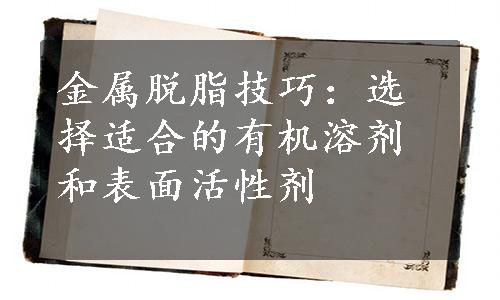 金属脱脂技巧：选
择适合的有机溶剂
和表面活性剂